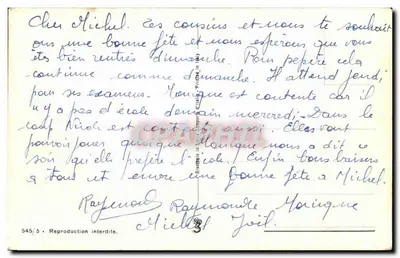 Cher Michel. Les cousins et nous te souhait
ons une bonne fête et nous espérons que vous
êtes bien rentrés dimanche. Pour pépère cela
continue comme dimanche. Il attend jeudi
pour ses examens. Monique est contente car il
n'y a pas d'école demain mercredi. Dans le
coup est contente aussi. Elles vont
pouvoir jouer quoique Monique nous a dit ce
soir qu'elle préfère l'école! Enfin bons baisers
à tous et encore une bonne fête à Michel.
Raymond Raymonde Monique
Michel Joël
545/5 - Reproduction interdite.